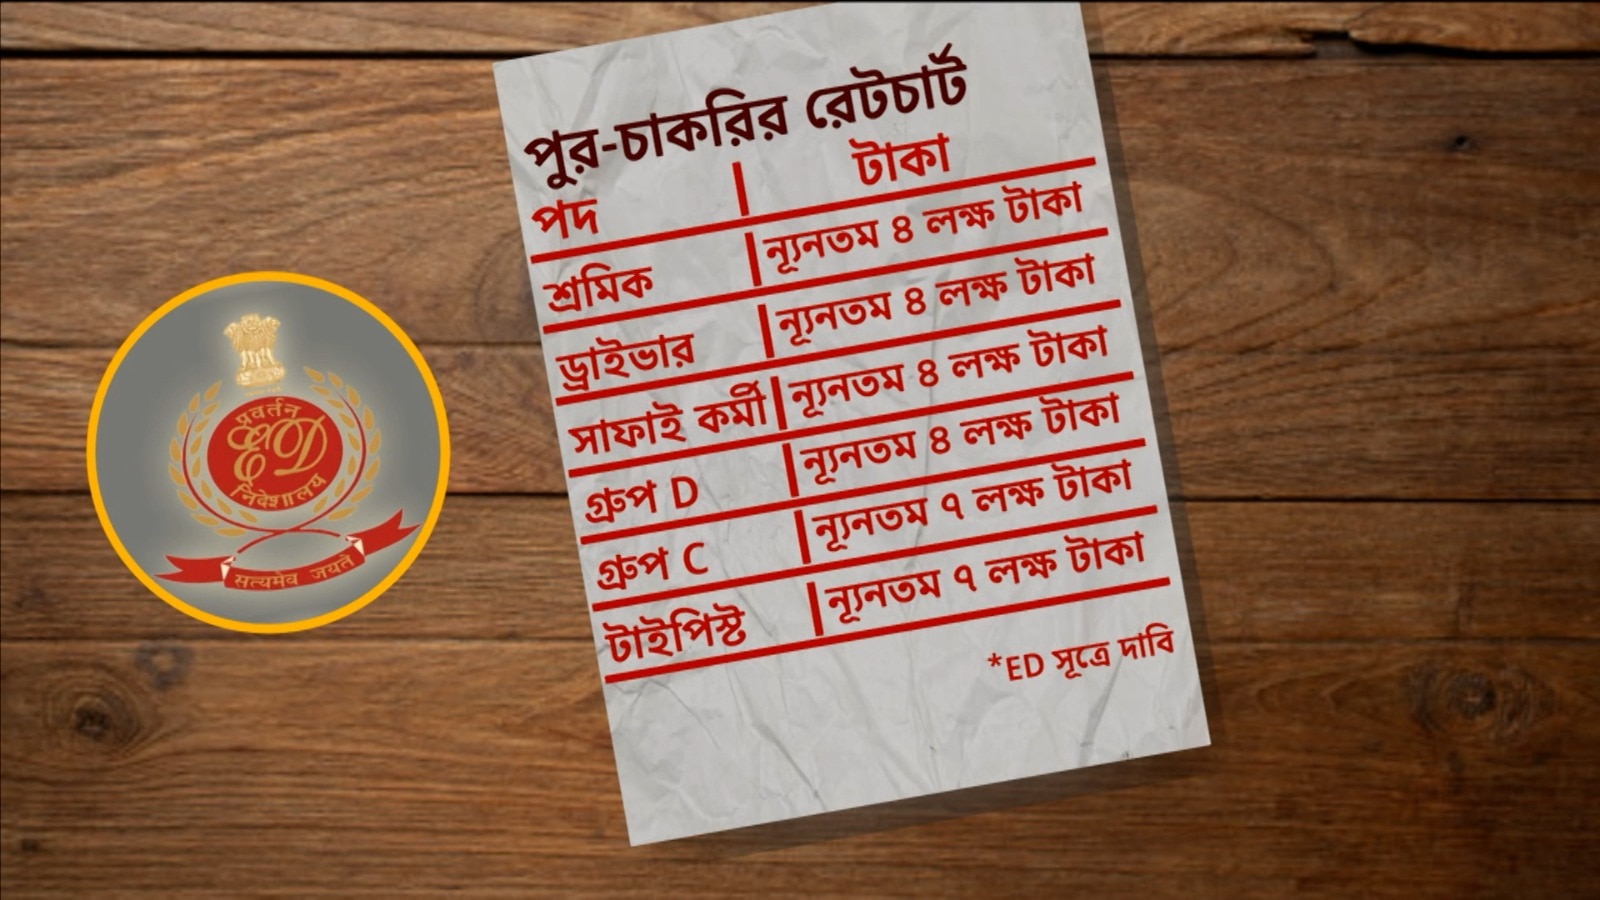 प्रवर्तन
ED
निदेशालय
सत्यमेव जयते
পুর-চাকরির রেটচার্ট
পদ | টাকা
শ্রমিক | ন্যূনতম ৪ লক্ষ টাকা
ড্রাইভার | ন্যূনতম ৪ লক্ষ টাকা
সাফাই কর্মী | ন্যূনতম ৪ লক্ষ টাকা
গ্রুপ D | ন্যূনতম ৪ লক্ষ টাকা
গ্রুপ C | ন্যূনতম ৭ লক্ষ টাকা
টাইপিস্ট | ন্যূনতম ৭ লক্ষ টাকা
*ED সূত্রে দাবি